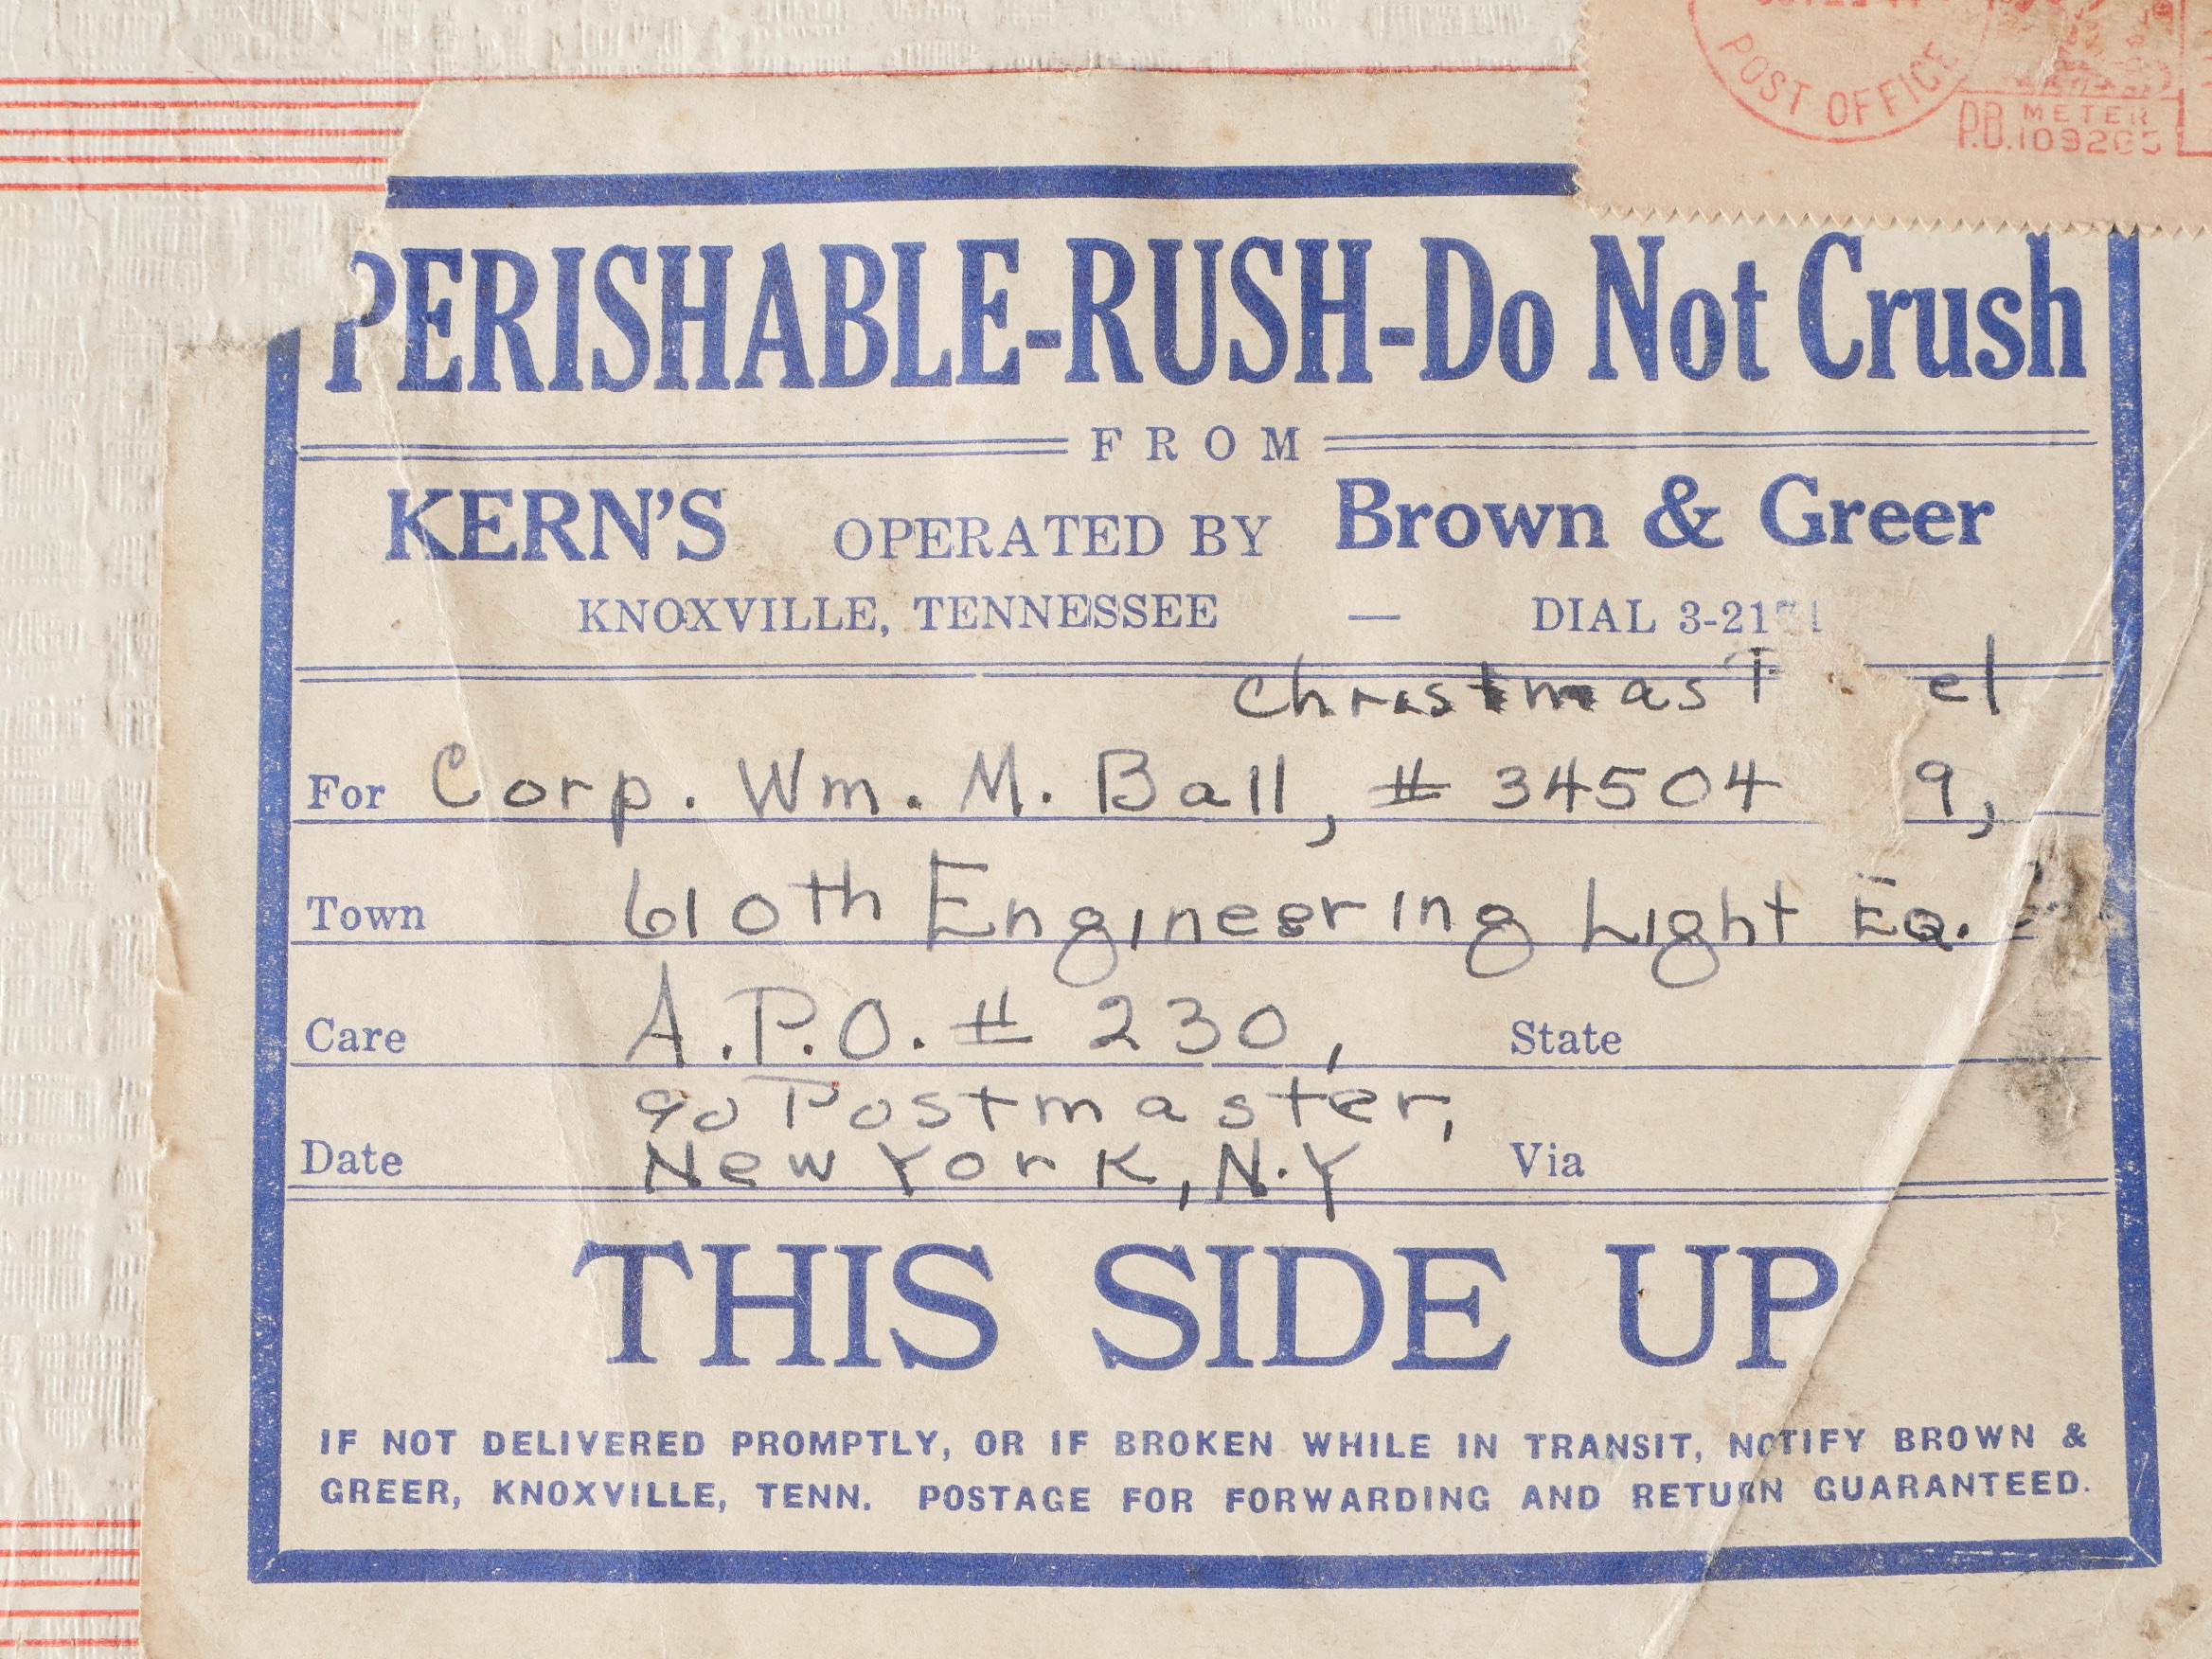 POST OFFICE
METER
P.B.
PERISHABLE-RUSH-Do Not Crush
FROM
KERN'S OPERATED BY Brown & Greer
KNOXVILLE, TENNESSEE — DIAL
Christmas
For Corp. Wm. M. Ball, # 34504 9,
Town 610th Engineering Light Eq.
Care A.P.O. # 230, State
c/o Postmaster,
Date New York, N.Y Via
THIS SIDE UP
IF NOT DELIVERED PROMPTLY, OR IF BROKEN WHILE IN TRANSIT, NOTIFY BROWN &
GREER, KNOXVILLE, TENN. POSTAGE FOR FORWARDING AND RETURN GUARANTEED.